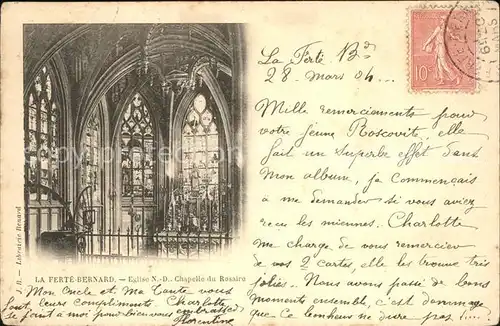 La Ferté Bd
28. Mars 04...
Mille remerciements pour
votre jeune Roscovite, elle
fait un superbe effet dans
Mon album, je commençais
à me demander si vous aviez
reçu les miennes. Charlotte
me charge de vous remercier
de vos 2 cartes, elle les trouve très
jolies. Nous avons passé de bons
Moments ensemble, c'est dommage
que ce bonheur ne dure pas!...!
J. B. - L. Librairie Renard
LA FERTÉ-BERNARD. — Église N.-D. Chapelle du Rosaire
Mon Oncle et Ma Tante vous
font leurs compliments Charlotte
se joint à moi pour bien vous embrasser
Florentine
10